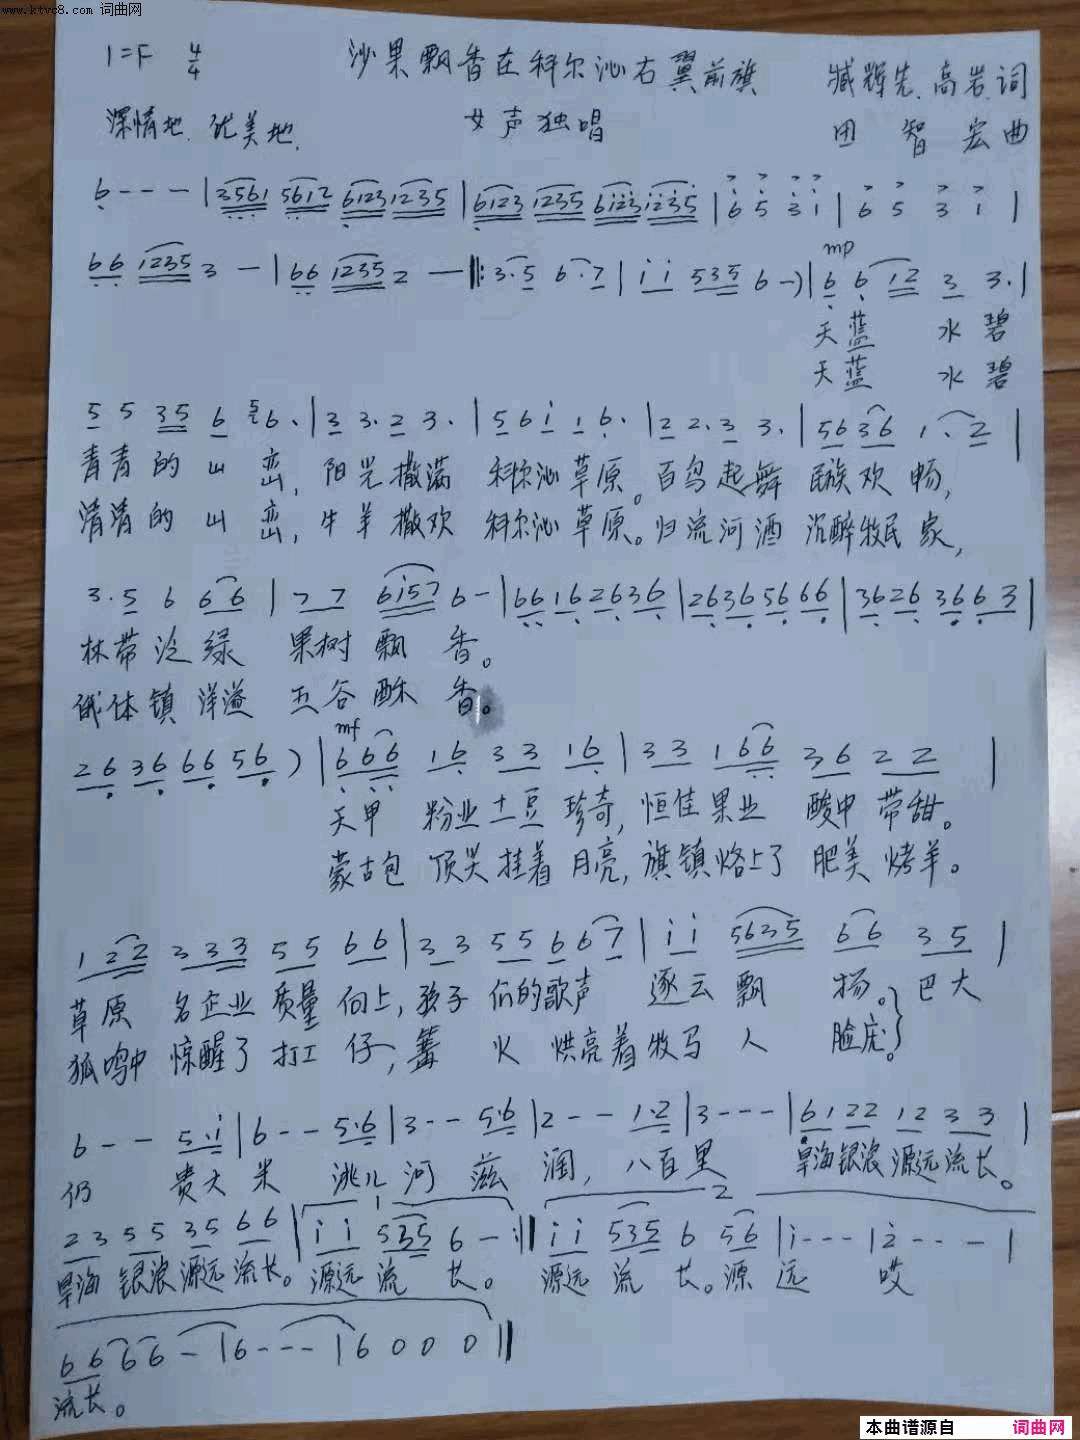 www.ktvc8.com 词曲网
1=F 4/4 沙果飘香在科尔沁右翼前旗 臧辉先、高岩词
深情地、优美地、 女声独唱 田智宏曲
6 - - - | 3561 5612 6123 1235 | 6123 1235 6123 1235 | 6 5 3 1 | 6 5 3 1 |
mp
66 1235 3 - | 66 1235 2 - ‖: 3·5 6·7 | i i 535 6 -) | 6 6 12 3 3· |
天蓝 水碧
天蓝 水碧
5 5 35 6 56· | 3 3·2 3· | 5 6 i 1 6· | 2 2·3 3· | 56 36 1·2 |
青青的山峦,阳光撒满 科尔沁草原。百鸟起舞 民族欢畅,
清清的山峦,牛羊撒欢 科尔沁草原。归流河酒 沉醉牧民家,
3·5 6 66 | 7 7 6i57 6 - | 66 16 26 36 | 26 36 56 66 | 36 26 36 63 |
林带泛绿 果树飘香。
俄体镇洋溢 五谷酥香。
mf
26 36 66 56 ) | 6 66 16 33 16 | 33 1 66 36 22 |
天甲 粉业土豆珍奇,恒佳果业 酸中带甜。
蒙古包 顶关挂着月亮,旗镇烙上了 肥美烤羊。
1 22 3 33 55 66 | 33 55 6 67 | i i 5635 66 35 |
草原 名企业 质量向上,孩子们的歌声 逐云飘扬。巴大
狐鸣中 惊醒了打工仔,篝火 烘亮着牧马人 脸庞。
6 - - 5·i | 6 - - 5·6 | 3 - - 5·6 | 2 - - 1·2 | 3 - - - | 61 22 12 33 |
仍 贵大米 洮儿河滋润,八百里 旱海银浪源远流长。
1 2
23 55 35 66 | i i 535 6 - :‖ i i 535 6 56 | i - - - | 2 - - - |
旱海银浪源远流长。源远流长。 源远流长。源远 哎
66 66 - | 6 - - - | 6 0 0 0 ‖
流长。
本曲谱源自 词曲网